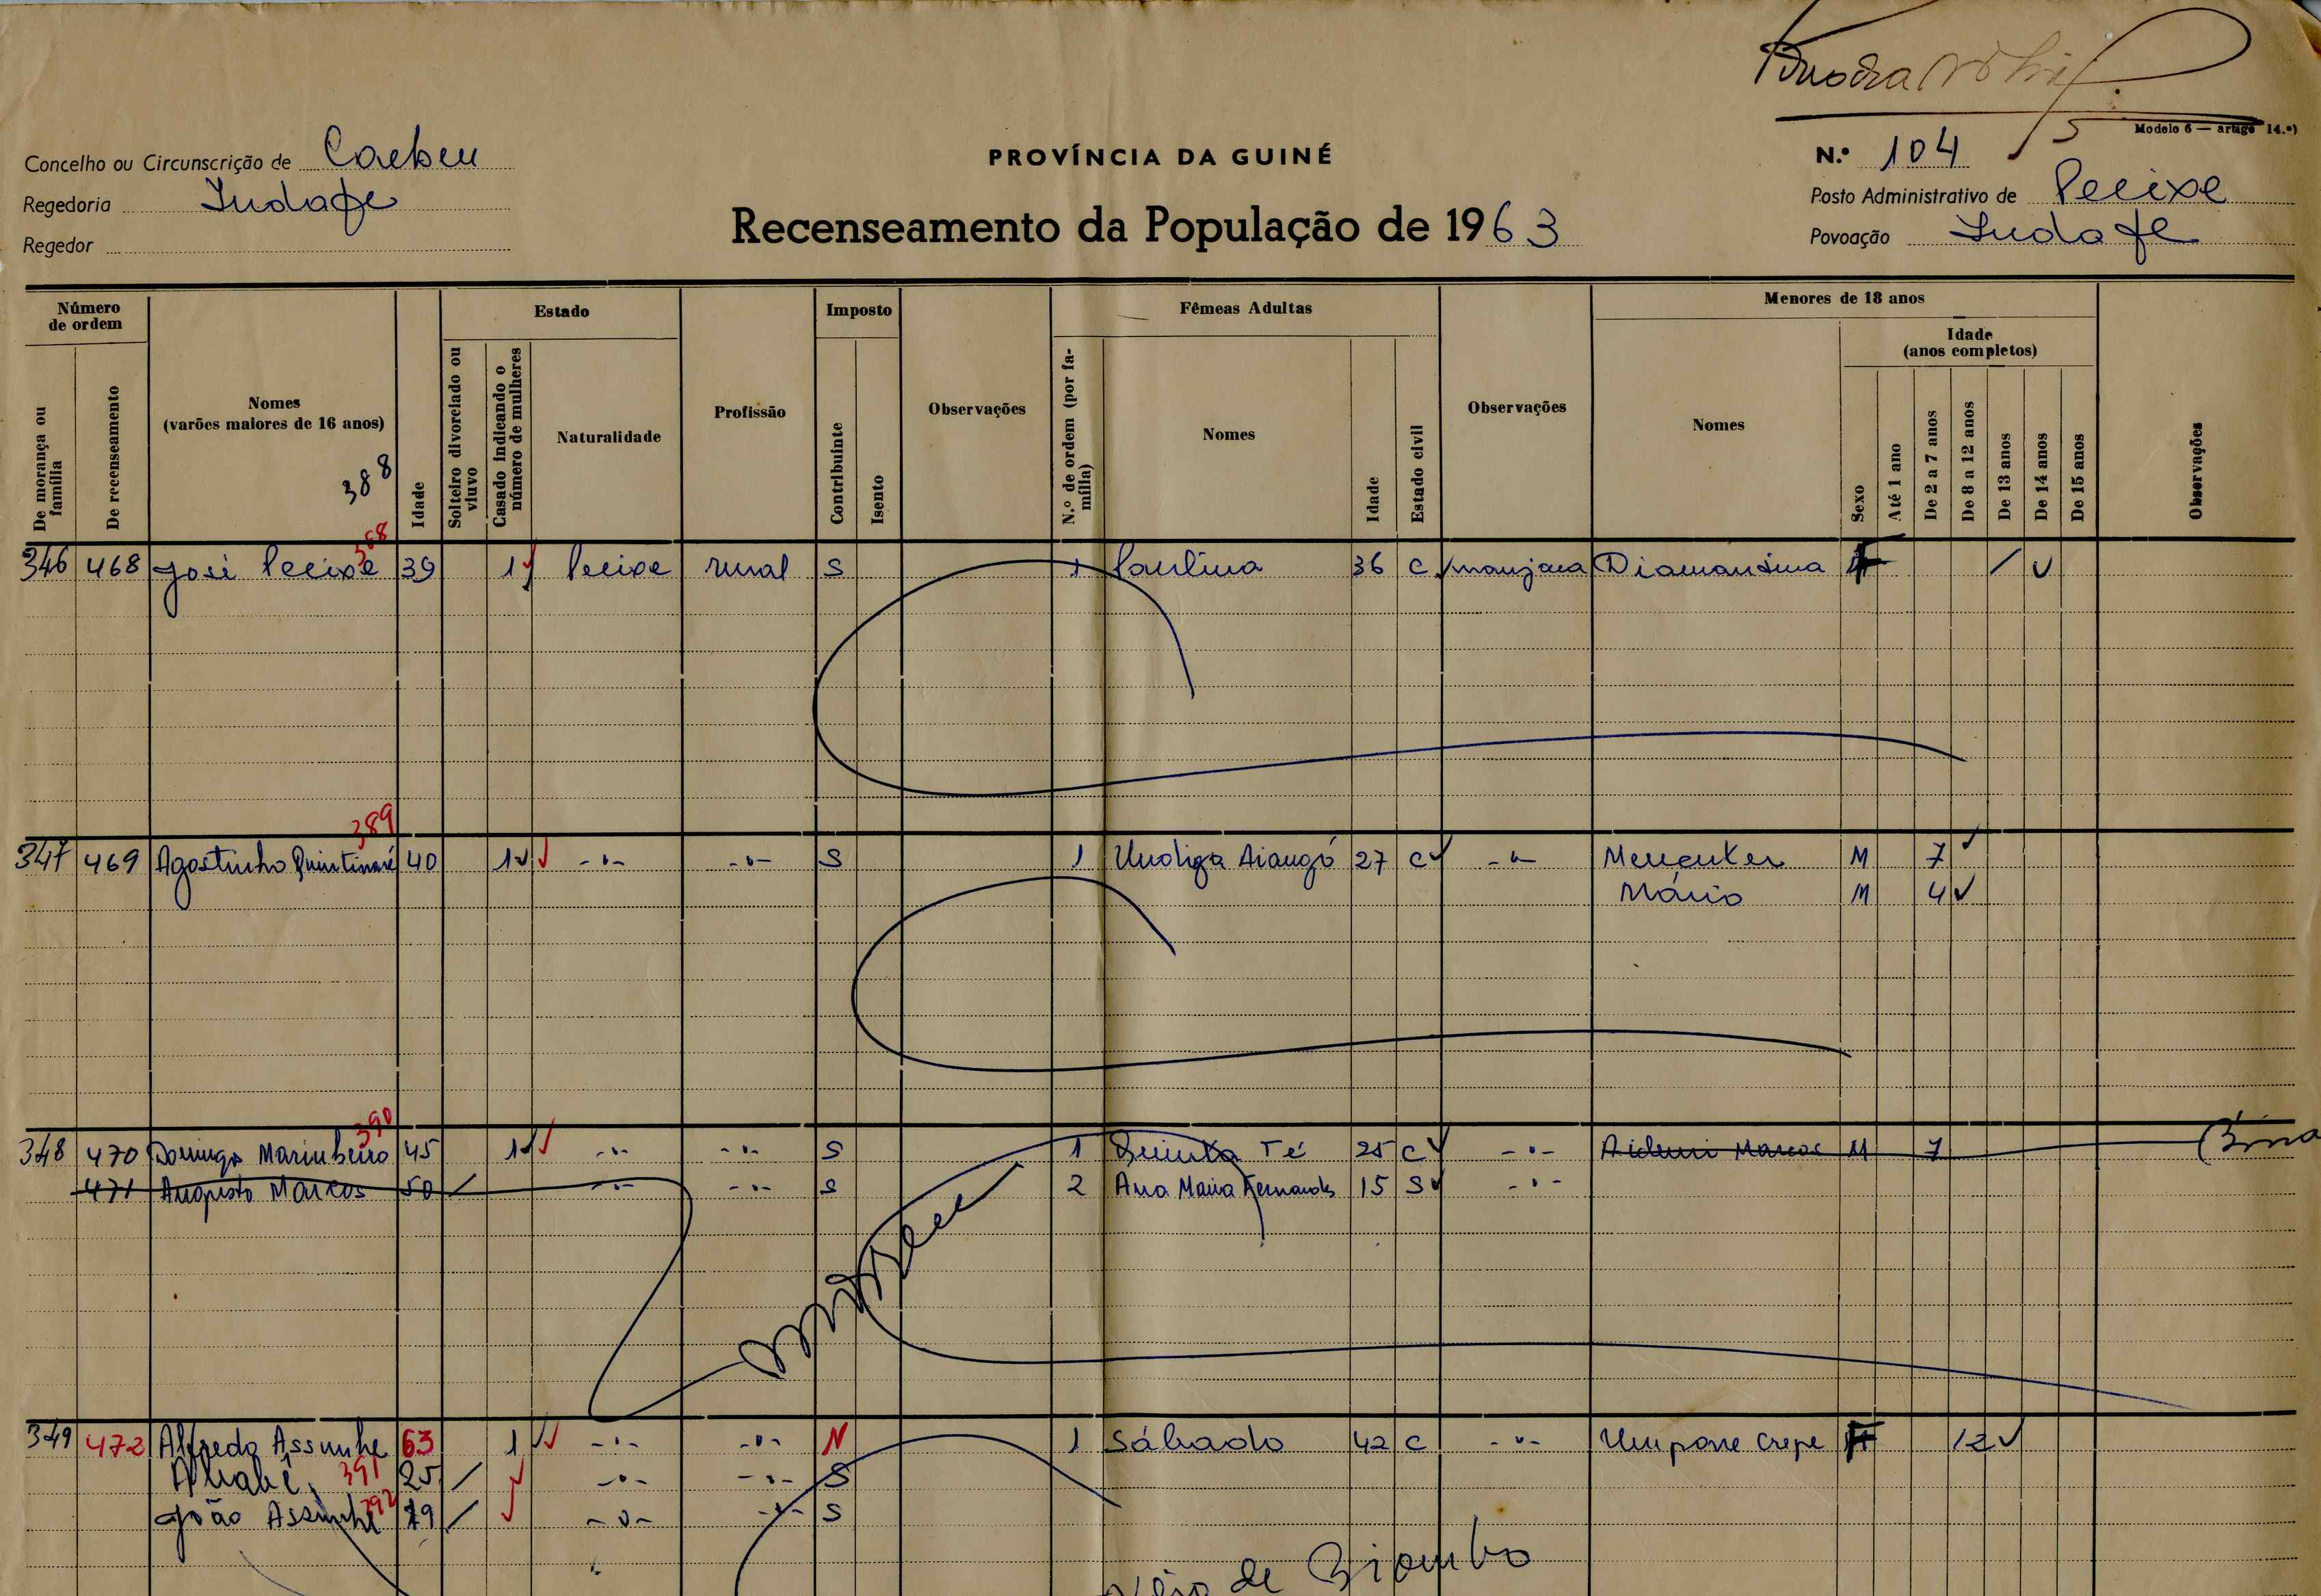 Modelo 6 — artigo 14.º)
Concelho ou Circunscrição de Caebeu
PROVÍNCIA DA GUINÉ
N.º 104
Regedoria Indafe
Recenseamento da População de 1963
Posto Administrativo de Pecixe
Regedor
Povoação Indafe
Número de ordem
Estado
Imposto
Fêmeas Adultas
Menores de 18 anos
Idade (anos completos)
De morança ou família
De recenseamento
Nomes (varões maiores de 16 anos)
Idade
Solteiro divorciado ou viuvo
Casado indicando o número de mulheres
Naturalidade
Profissão
Contribuinte
Isento
Observações
N.º de ordem (por família)
Nomes
Idade
Estado civil
Observações
Nomes
Sexo
Até 1 ano
De 2 a 7 anos
De 8 a 12 anos
De 13 anos
De 14 anos
De 15 anos
Observações
388
388
346 468 José Pecixe 39 1 Pecixe rural S 1 Paulina 36 C manjaca Diamantina F
389
347 469 Agostinho 40 1 -"- -"- S 1 Undiga Aiangó 27 C -"- M 7
Mário M 4
390
348 470 Domingo Marinheiro 45 1 -"- -"- S 1 Quinta Té 25 C -"- Marcos M 7
471 Augusto Marcos 50 -"- -"- S 2 Ana Maria Fernandes 15 S -"-
349 472 Alfredo Assunhe 63 1 -"- -"- N 1 Sábado 42 C -"- Umpone Crepe F 12
391 25 -"- -"- S
João Assunhe 392 19 -"- -"- S
de Biombo